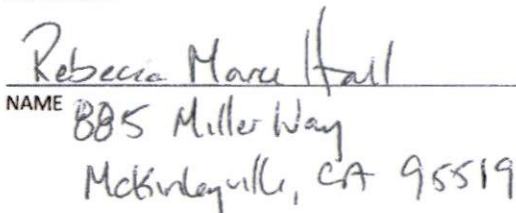 Rebecca Marie Hall
NAME
885 Miller Way
McKinleyville, CA 95519